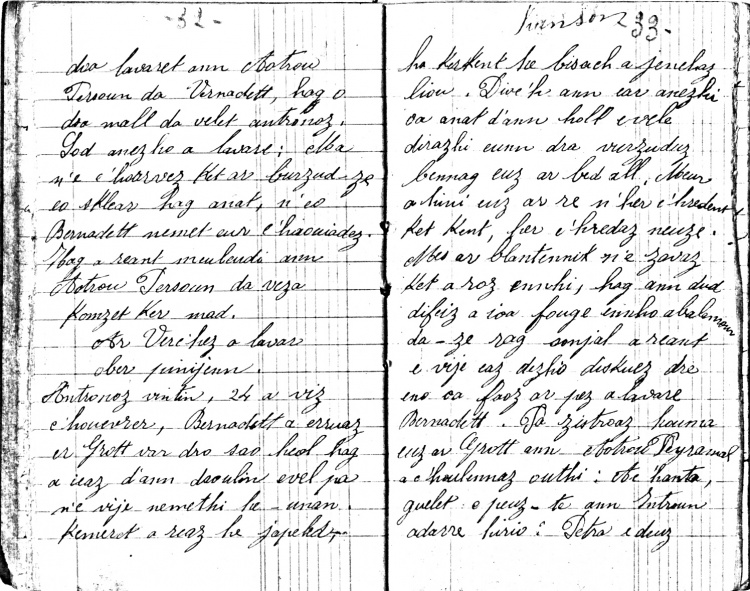 -32-
doa lavaret ann Aotrou
Persoun da Vernadett, hag o
doa mall da velet antronoz.
Lod anezho a lavare ; Ma
n'e c'hoarvez ket ar burzud-ze
eo sklear hag anat, n'eo
Bernadett nemet eur c'haouiadez.
Hag a reant meuleudi ann
Aotrou Persoun da veza
komzet ker mad.
Ar Verc'hez a lavar
ober pinijenn.
Antronoz vintin, 24 a viz
c'houevrer, Bernadett a erruaz
er Grott var dro sao heol hag
a ieaz d'ann daoulin evel pa
n'e vije nemethi he-unan.
Kemerot a reaz he japeled
33-
ha kerkent he bisach a jenchaz
liou. Dive'h ann ear anezhi
oa anat d'ann holl evele
dirazhi eunn dra vurzuduz
bennag euz ar bed all. Meur
a hini euz ar re n'her c'hredent
ket kent, her c'hredaz neuze.
Mes ar blantennik n'e zavaz
ket a roz ennhi, hag ann dud
difeiz a ioa fouge ennho abalamour
da-ze rag sonjal a reant
e vije eaz dezho diskuez dre
eno oa faoz ar pez a lavare
Bernadett. Pa zistroaz houma
euz ar Grott ann Aotrou Peyramal
a c'houlennaz outhi : Ac'hanta,
guelet o peuz-te ann Introun
adarre hirio ? Petra e deuz